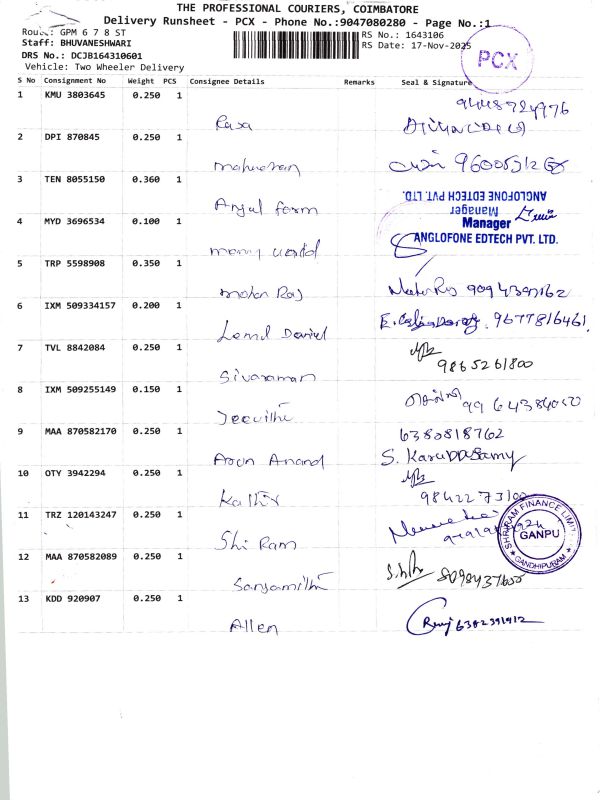 THE PROFESSIONAL COURIERS, COIMBATORE
Delivery Runsheet - PCX - Phone No.:9047080280 - Page No.:1
Route: GPM 6 7 8 ST
RS No.: 1643106
Staff: BHUVANESHWARI
RS Date: 17-Nov-2025
PCX
DRS No.: DCJB164310601
Vehicle: Two Wheeler Delivery
S No Consignment No Weight PCS Consignee Details Remarks Seal & Signature
1 KMU 3803645 0.250 1 Rasa
2 DPI 870845 0.250 1
3 TEN 8055150 0.360 1 Anjul form
ANGLOFONE EDTECH PVT. LTD.
Manager
4 MYD 3696534 0.100 1
Manager
ANGLOFONE EDTECH PVT. LTD.
5 TRP 5598908 0.350 1 mohan Raj
6 IXM 509334157 0.200 1 9677816461
7 TVL 8842084 0.250 1 Sivaraman 9865261800
8 IXM 509255149 0.150 1 Jeevitha
9 MAA 870582170 0.250 1 Arun Anand 6380818762
S. Karuppasamy
10 OTY 3942294 0.250 1 Kathir
11 TRZ 120143247 0.250 1 Shri Ram
SHRIRAM FINANCE LIMITED
GANPU
GANDHIPURAM
12 MAA 870582089 0.250 1 Sanjamithi
13 KDD 920907 0.250 1 Allen 6382391912